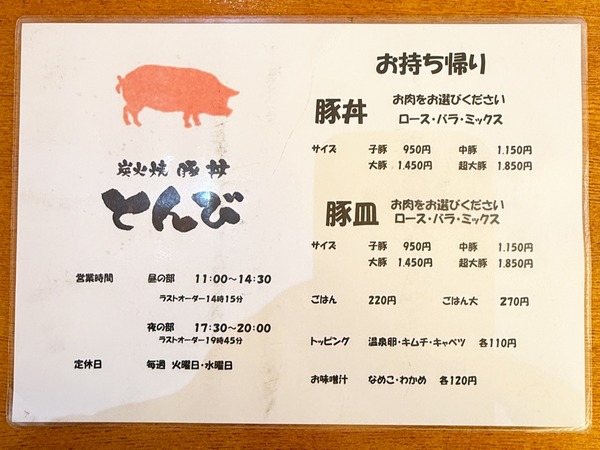 炭火焼 豚丼
とんび
営業時間 昼の部 11:00～14:30
ラストオーダー14時15分
夜の部 17:30～20:00
ラストオーダー19時45分
定休日 毎週 火曜日・水曜日
お持ち帰り
豚丼 お肉をお選びください
ロース・バラ・ミックス
サイズ 子豚 950円 中豚 1.150円
大豚 1.450円 超大豚 1.850円
豚皿 お肉をお選びください
ロース・バラ・ミックス
サイズ 子豚 950円 中豚 1.150円
大豚 1.450円 超大豚 1.850円
ごはん 220円 ごはん大 270円
トッピング 温泉卵・キムチ・キャベツ 各110円
お味噌汁 なめこ・わかめ 各120円